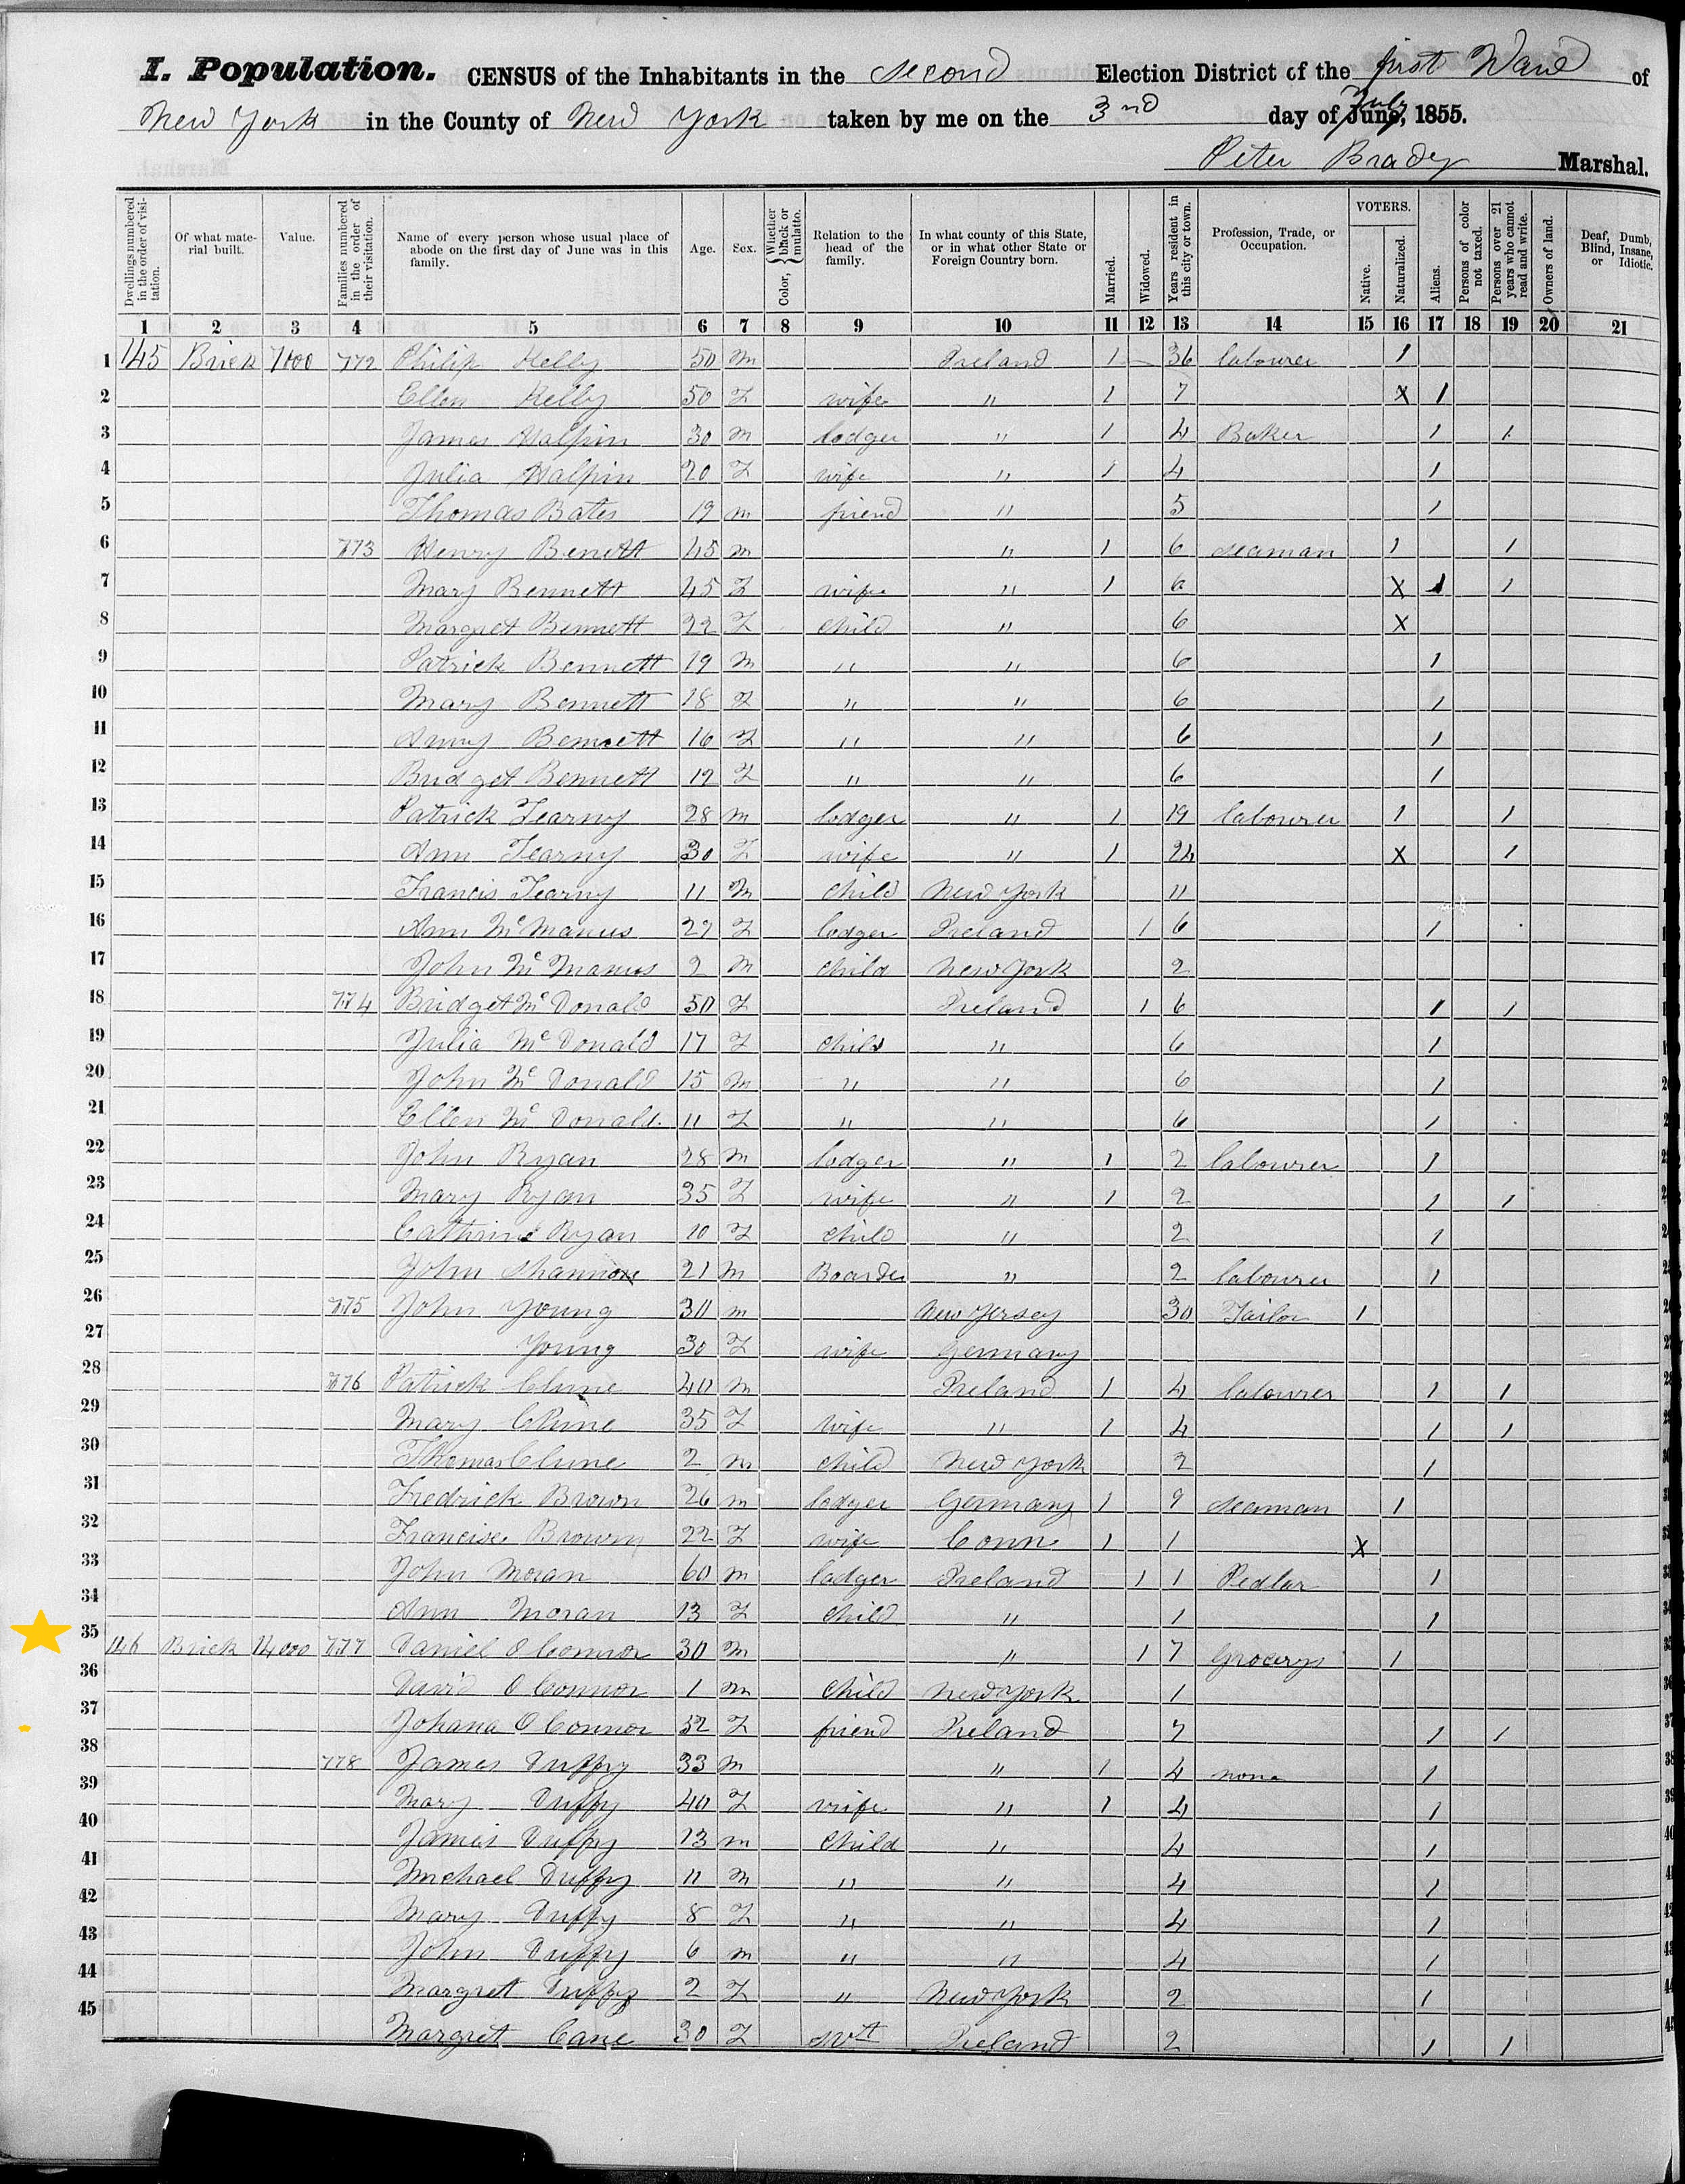 I. Population. CENSUS of the Inhabitants in the second Election District of the first Ward of
New York in the County of New York taken by me on the 3rd day of June, July 1855.
Peter Brady Marshal.
Dwellings numbered in the order of visitation. Of what material built. Value. Families numbered in the order of their visitation. Name of every person whose usual place of abode on the first day of June was in this family. Age. Sex. Color, Whether black or mulatto. Relation to the head of the family. In what county of this State, or in what other State or Foreign Country born. Married. Widowed. Years resident in this city or town. Profession, Trade, or Occupation. VOTERS. Native. Naturalized. Aliens. Persons of color not taxed. Persons over 21 years who cannot read and write. Owners of land. Deaf, Dumb, Blind, Insane, or Idiotic.
1 2 3 4 5 6 7 8 9 10 11 12 13 14 15 16 17 18 19 20 21
1 145 Brick 7000 772 Philip Kelly 50 m Ireland 1 36 labourer 1
2 Ellen Kelly 50 F wife " 1 7 X 1
3 James Halpin 30 m lodger " 1 4 Baker 1 1
4 Julia Halpin 20 F wife " 1 4 1
5 Thomas Bates 19 m friend " 5 1
6 773 Henry Benett 45 m " 1 6 seaman 1 1
7 Mary Bennett 45 F wife " 1 6 X 1 1
8 Margret Bennett 22 F child " 6 X
9 Patrick Bennett 19 m " " 6 1
10 Mary Bennett 18 F " " 6 1
11 Anny Bennett 16 F " " 6 1
12 Bridget Bennett 12 F " " 6 1
13 Patrick Tearny 28 m lodger " 1 19 labourer 1 1
14 Ann Tearny 30 F wife " 1 24 X 1
15 Francis Tearny 11 m child New York 11
16 Ann McManus 27 F lodger Ireland 1 6 1
17 John McManus 2 m child New York 2
18 774 Bridget McDonald 50 F Ireland 1 6 1 1
19 Julia McDonald 17 F child " 6 1
20 John McDonald 15 m " " 6 1
21 Ellen McDonald 11 F " " 6 1
22 John Ryan 28 m lodger " 1 2 labourer 1
23 Mary Ryan 35 F wife " 1 2 1 1
24 Cathrine Ryan 10 F child " 2 1
25 John 21 m Boarder " 2 labourer 1
26 775 John Young 30 m New Jersey 30 Tailor 1
27 Young 30 F wife Germany
28 776 Patrick Clune 40 m Ireland 1 4 labourer 1 1
29 Mary Clune 35 F wife " 1 4 1 1
30 Thomas Clune 2 m child New York 2 1
31 Fredrick Brown 26 m lodger Germany 1 9 seaman 1
32 Francise Brown 22 F wife Conn 1 1 X
33 John Moran 60 m lodger Ireland 1 1 Pedlar 1
34 Ann Moran 13 F child " 1 1
35 146 Brick 14000 777 Daniel O Connor 30 m " 1 7 Grocery 1
36 David O Connor 1 m child New York 1
37 Johana O Connor 32 F friend Ireland 7 1 1
38 778 James Duffy 33 m " 1 4 none 1
39 Mary Duffy 40 F wife " 1 4 1
40 James Duffy 13 m child " 4 1
41 Michael Duffy 11 m " " 4 1
42 Mary Duffy 8 F " " 4 1
43 John Duffy 6 m " " 4 1
44 Margret Duffy 2 F " New York 2 1
45 Margret Cane 30 F svt Ireland 2 1 1